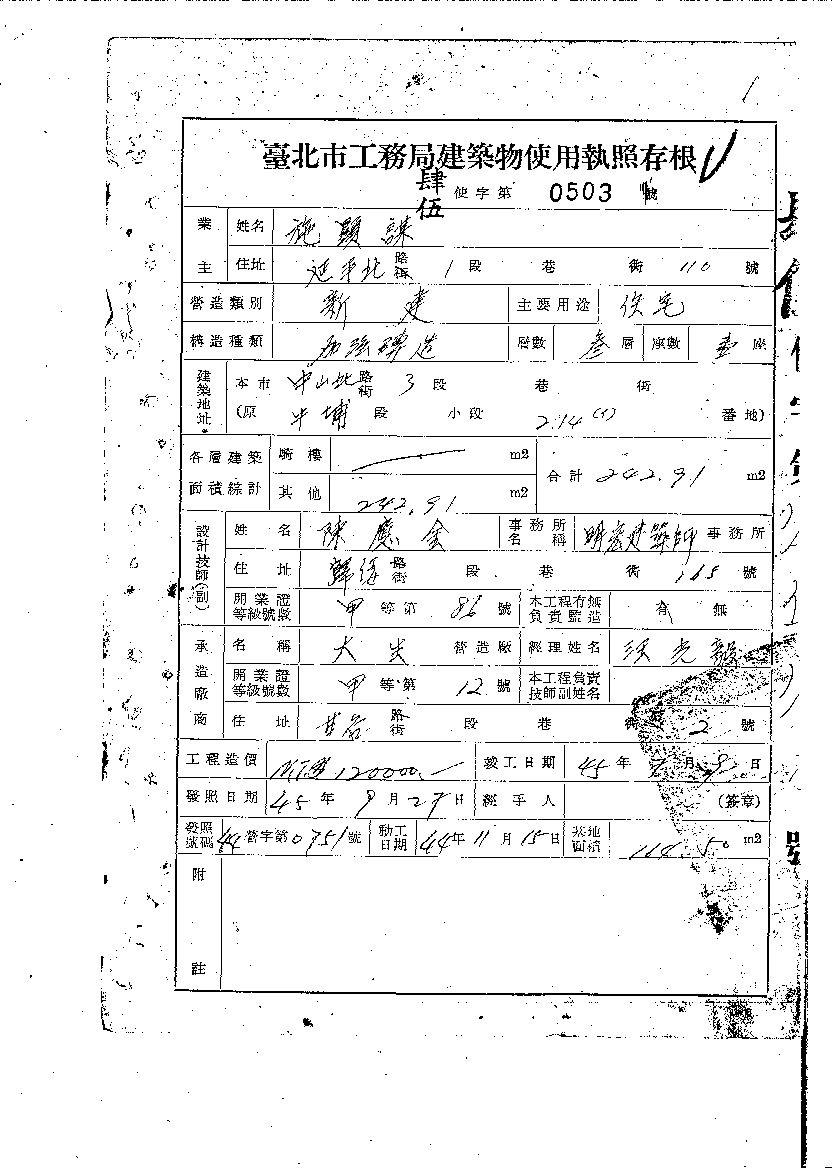 臺北市工務局建築物使用執照存根
肆伍 使字第 0503 號
業主 姓名 施 謀
住址 延平北 路街 1 段 巷 街 110 號
營造類別 新建 主要用途 住宅
構造種類 加強磚造 層數 叁 層 座數 壹 座
建築地址 本市 中山北 路街 3 段 巷 街
(原 牛埔 段 小段 214(1) 番地)
各層建築面積綜計 騎樓 m2 合計 242.91 m2
其他 242.91 m2
設計技師(副) 姓名 陳應金 事務所名稱 建築師 事務所
住址 路街 段 巷 街 165 號
開業證等級號數 甲 等第 86 號 本工程有無負責監造 有 無
承造廠商 名稱 大 營造廠 經理姓名 光毅
開業證等級號數 甲 等第 12 號 本工程負責技師副姓名
住址 甘谷 路街 段 巷 街 2 號
工程造價 120000.— 竣工日期 45 年 月 日
發照日期 45 年 9 月 27 日 經手人 (簽章)
發照號碼 44 營字第 0751 號 動工日期 44 年 11 月 15 日 基地面積 114.50 m2
附註